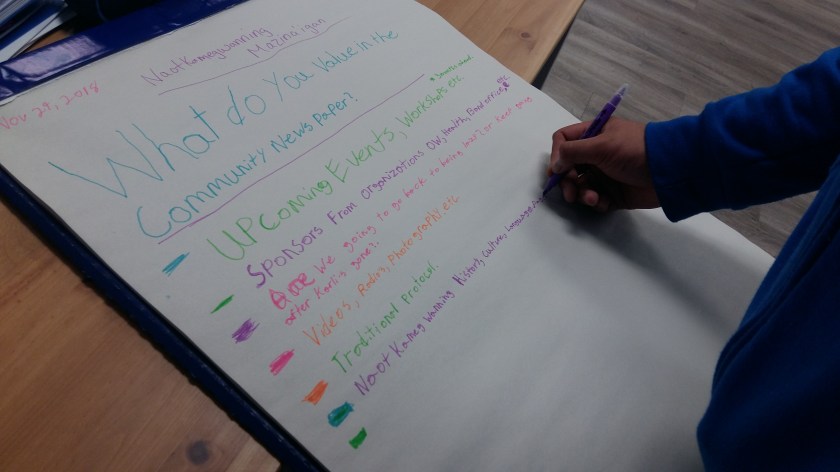 Naotkamegwanning
Mazina'igan
Nov 29, 2018
What do you value in the
Community News Paper?
UPcoming Events, Workshops, etc
Sponsors From Organizations OW, Health, Band office, etc.
Are We going to go back to being or keep going
after Karli's gone?
Videos, Radios, Photographs, etc
Traditional Protocol.
Naot Kameg Wanning History, Culture, Language